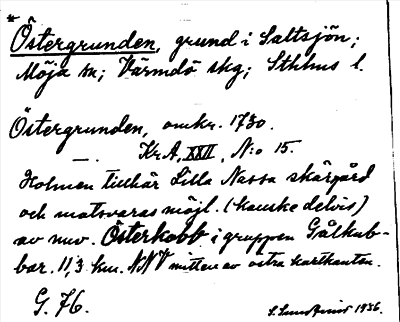 *
Östergrunden, grund i Saltsjön;
Möja sn; Värmdö skg; Sthlms l.
Östergrunden, omkr. 1730.
— Kr.A, XXII, N:o 15.
Holmen tillhör Lilla Nassa skärgård
och motsvaras möjl. (kanske delvis)
av nuv. Österkobb i gruppen Gålkub-
bar. 11,3 km. NNV mitten av östra kartkanten.
G. 76. 1936.